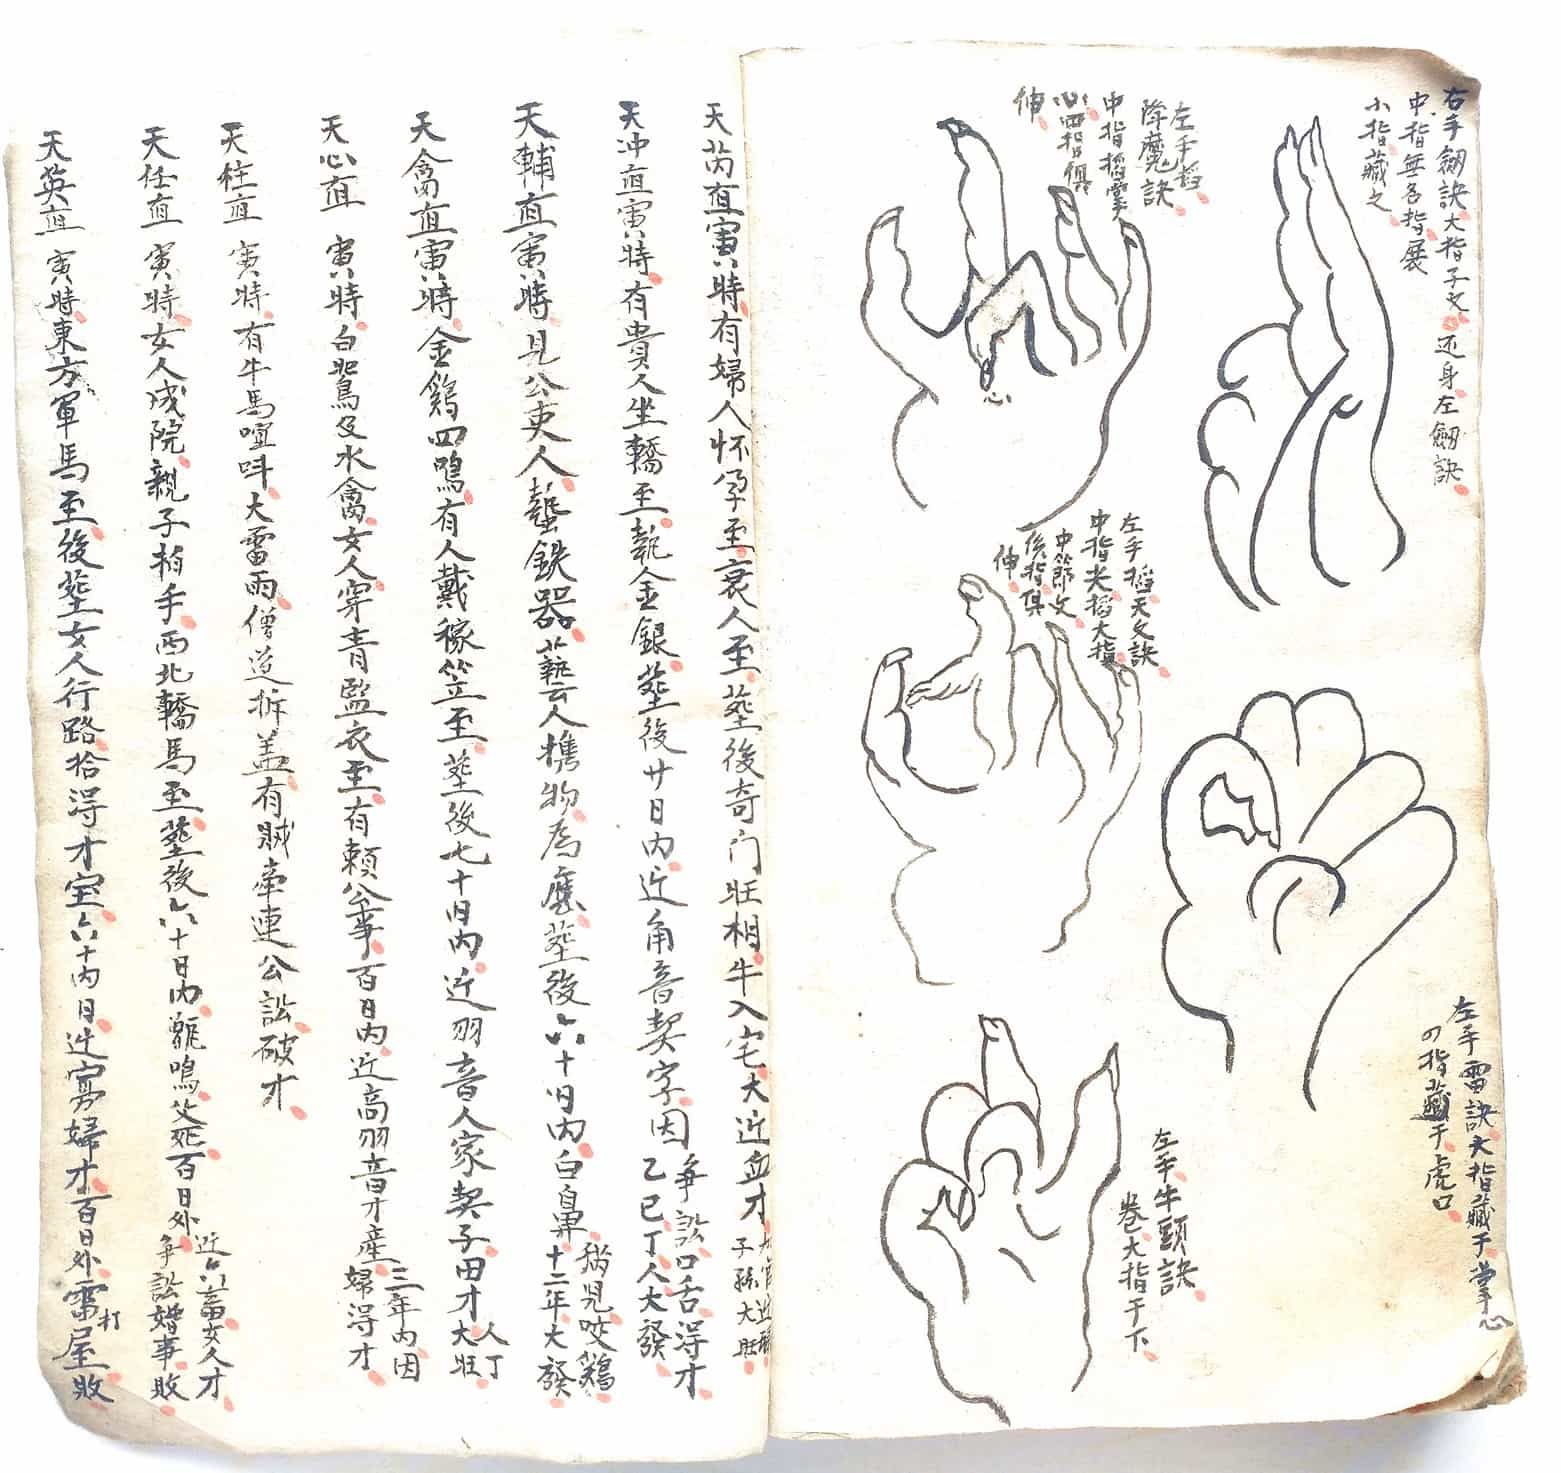 右手劔訣大指子文还身左劔訣
中指無名指展
小指藏之
左手搯
降魔訣
中指搯掌
心四指俱
伸
左手搯天文訣
中指尖搯大指
中節文
後指俱
伸
心
左手雷訣大指藏于掌心
四指藏于虎口
左手牛頭訣
卷大指于下
天芮直寅时有婦人怀孕至衰人至塟後奇门旺相牛入宅大近血才
子孫大旺
天冲直寅时有貴人坐轎至執金銀塟後廿日内近角音契字因
争訟口舌淂才
乙巳丁人大發
天輔直寅时見公吏人𢹂鉄器藝人携物為應塟後六十日内白鼻
猫児咬鷄
十二年大發
天禽直寅时金鷄四鳴有人戴稼笠至塟後七十日内近羽音人家契子田才
人丁
大旺
天心直寅时白鷺及水禽女人穿青監衣至有賴公事百日内近高羽音才產
三年内因
婦淂才
天柱直寅时有牛馬喧呌大雷雨僧道拆盖有賊牽連公訟破才
天任直寅时女人成院親子拍手西北轎馬至塟後六十日内雞鳴父死百日外
近六畜女人才
争訟婚事敗
天英直寅时東方軍馬至後塟女人行路拾淂才宝六十内日近寡婦才百日外雷打屋敗